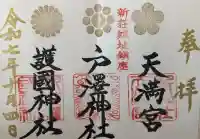 奉拝
天満宮
新荘城址鎮座
戸澤神社
護國神社
令和七年十月四日